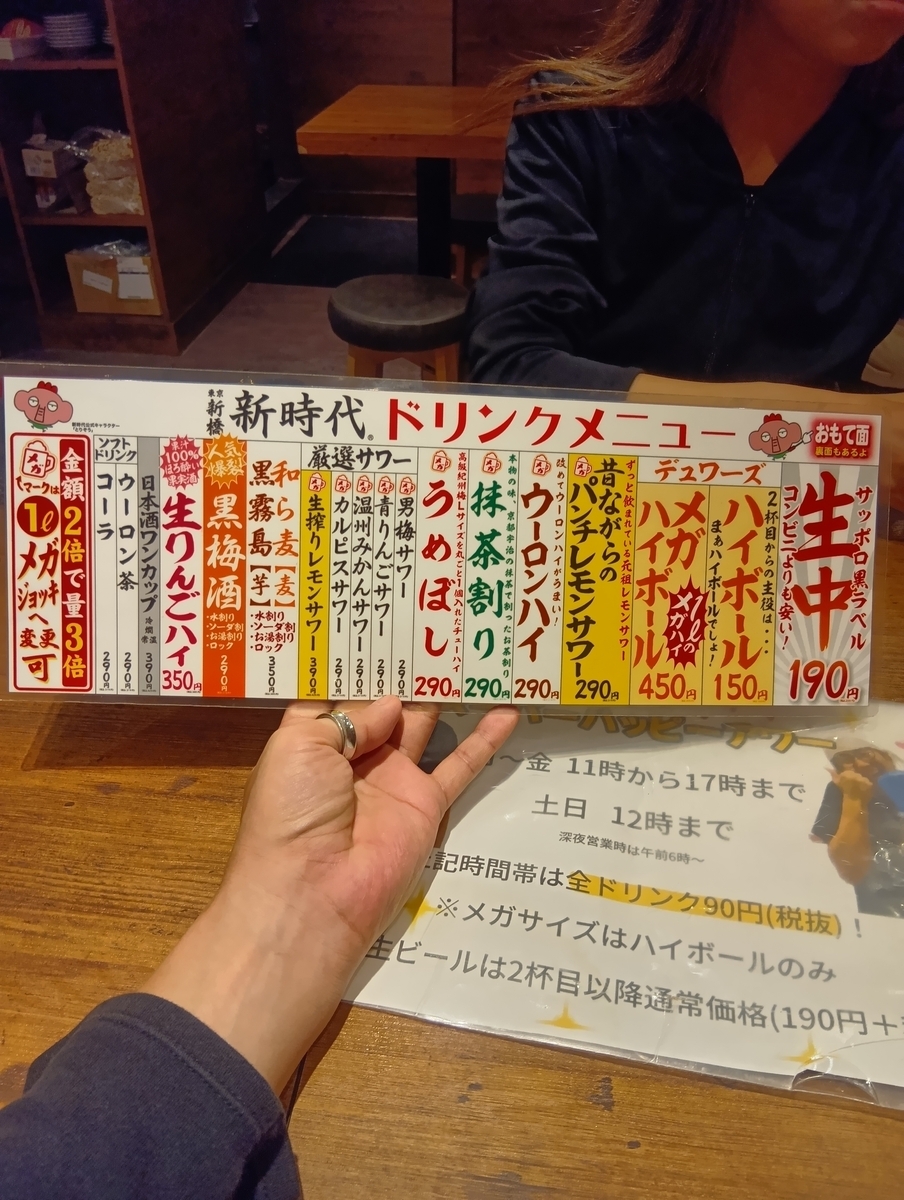 東京
新橋
新時代®
ドリンクメニュー
新時代公式キャラクター
『とりぞう』
おもて面
裏面もあるよ
サッポロ黒ラベル
生中
コンビニよりも安い！
190円
デュワーズ
2杯目からの主役は・・・
まぁハイボールでしょ！
ハイボール
150円
メガハイボール
1ℓの
メガハイ
450円
ずっと飲まれている元祖レモンサワー
昔ながらの
パンチレモンサワー
290円
改めてウーロンハイがうまい！
メガ
ウーロンハイ
290円
本物の味、京都宇治の抹茶で割ったお茶割り
メガ
抹茶割り
290円
高級紀州梅Lサイズを丸ごと1個入れたチューハイ
メガ
うめぼし
290円
厳選サワー
メガ
男梅サワー
290円
メガ
青りんごサワー
290円
メガ
温州みかんサワー
290円
メガ
カルピスサワー
290円
メガ
生搾りレモンサワー
390円
和ら麦【麦】
黒霧島【芋】
・水割り
・ソーダ割り
・お湯割り
・ロック
350円
人気爆発！
黒梅酒
・水割り
・ソーダ割り
・お湯割り
・ロック
290円
果汁100%
ほろ酔い
果実酒
生りんごハイ
350円
日本酒ワンカップ
冷 燗
常温
390円
ソフト
ドリンク
ウーロン茶
290円
コーラ
290円
金額2倍で量3倍
メガ
マークは
1ℓ
メガ
ジョッキ
へ変更
可
ーハッピーアワー
～金 11時から17時まで
土日 12時まで
深夜営業時は午前6時～
記時間帯は全ドリンク90円(税抜)！
※メガサイズはハイボールのみ
生ビールは2杯目以降通常価格(190円＋